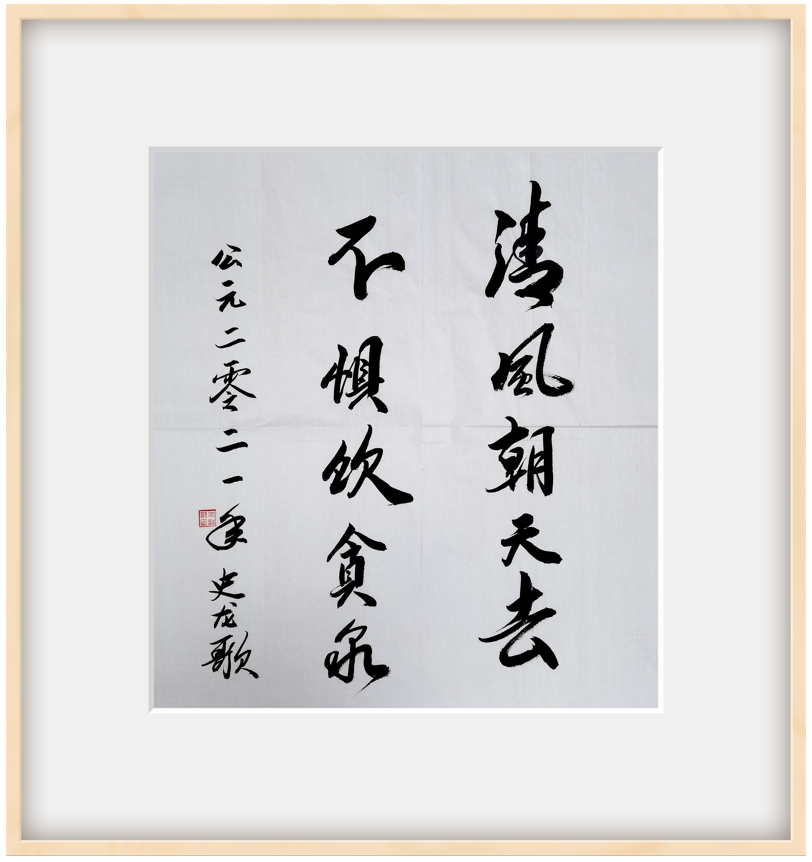 清風朝天去
不惧饮贪泉
公元二零二一年 史龙歌